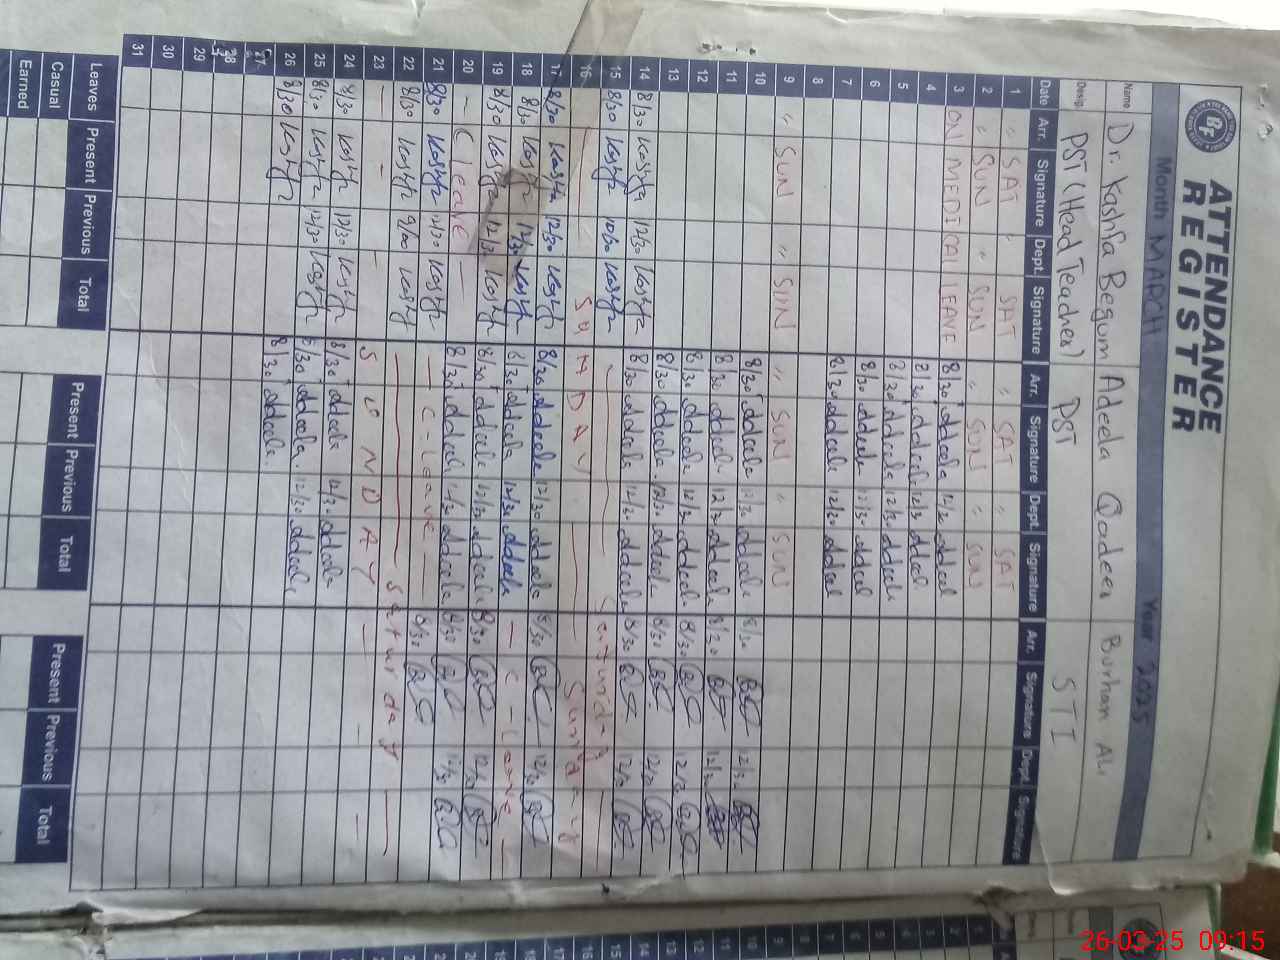 ATTENDANCE
REGISTER
BF
Month MARCH Year 2025
Name Dr. Kashfa Begum Adeela Qadeer Burhan Ali
Desig: PST (Head Teacher) PST STI
Date Arr. Signature Dept. Signature Arr. Signature Dept. Signature Arr. Signature Dept. Signature
1 " SAT " SAT " SAT " SAT
2 " SUN " SUN " SUN " SUN
3 ON MEDICAL LEAVE 8/30 Adeela 12/30 Adeel
4 8/30 Adeela 12/30 Adeela
5 8/30 Adeela 12/30 Adeela
6 8/30 Adeela 12/30 Adeel
7 8/30 Adeela 12/30 Adeel
8
9 " SUN " SUN " SUN " SUN
10 8/30 Adeela 12/30 Adeel 8/30 12/30
11 8/30 Adeela 12/30 Adeela 8/30 12/30
12 8/30 Adeela 12/30 Adeela 8/30 12/30
13 8/30 Adeela 12/30 Adeela 8/30 12/30
14 8/30 Kashfa 12/30 Kashfa 8/30 Adeela 12/30 Adeela 8/30 12/30
15 8/30 Kashfa 10/30 Kashfa
16 SUNDAY Sunday
17 8/30 Kashfa 12/30 Kashfa 8/30 Adeela 12/30 Adeela 8/30 12/30
18 8/30 Kashfa 12/30 Kashfa 8/30 Adeela 12/30 Adeela C-Leave
19 8/30 Kashfa 12/30 Kashfa 8/30 Adeela 12/30 Adeela 8/30 12/30
20 C leave 8/30 Adeela 12/30 Adeela 8/30 12/30
21 8/30 Kashfa 12/30 Kashfa C-Leave 8/30
22 8/30 Kashfa 9/00 Kashfa Saturday
23 SUNDAY
24 8/30 Kashfa 12/30 Kashfa 8/30 Adeela 12/30 Adeela
25 8/30 Kashfa 12/30 Kashfa 8/30 Adeela 12/30 Adeela
26 8/30 Kashfa 8/30 Adeela
27
28
29
30
31
Leaves Present Previous Total Present Previous Total Present Previous Total
Casual
Earned
26-03-25 09:15